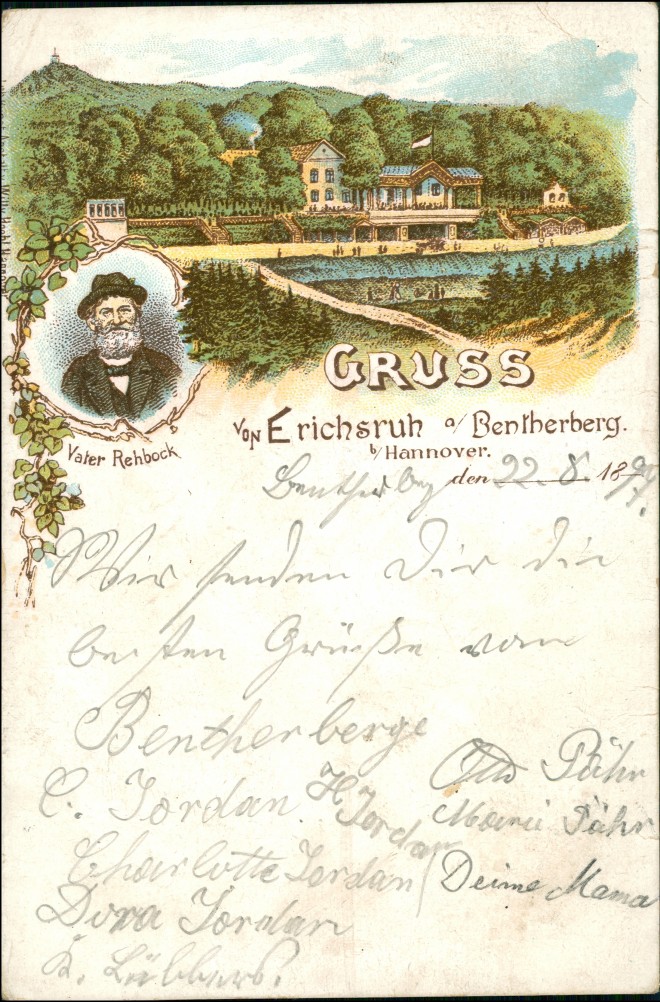 GRUSS
von Erichsruh a/ Bentherberg.
b/ Hannover.
Vater Rehbock
Bentherberg den 22. 8. 1897.
Wir senden Dir die
besten Grüße vom
Bentherberge
C. Jordan H Jordan
Charlotte Jordan
Dora Jordan
K. Lübbers.
Otto Pähr
Marie Pähr
Deine Mama